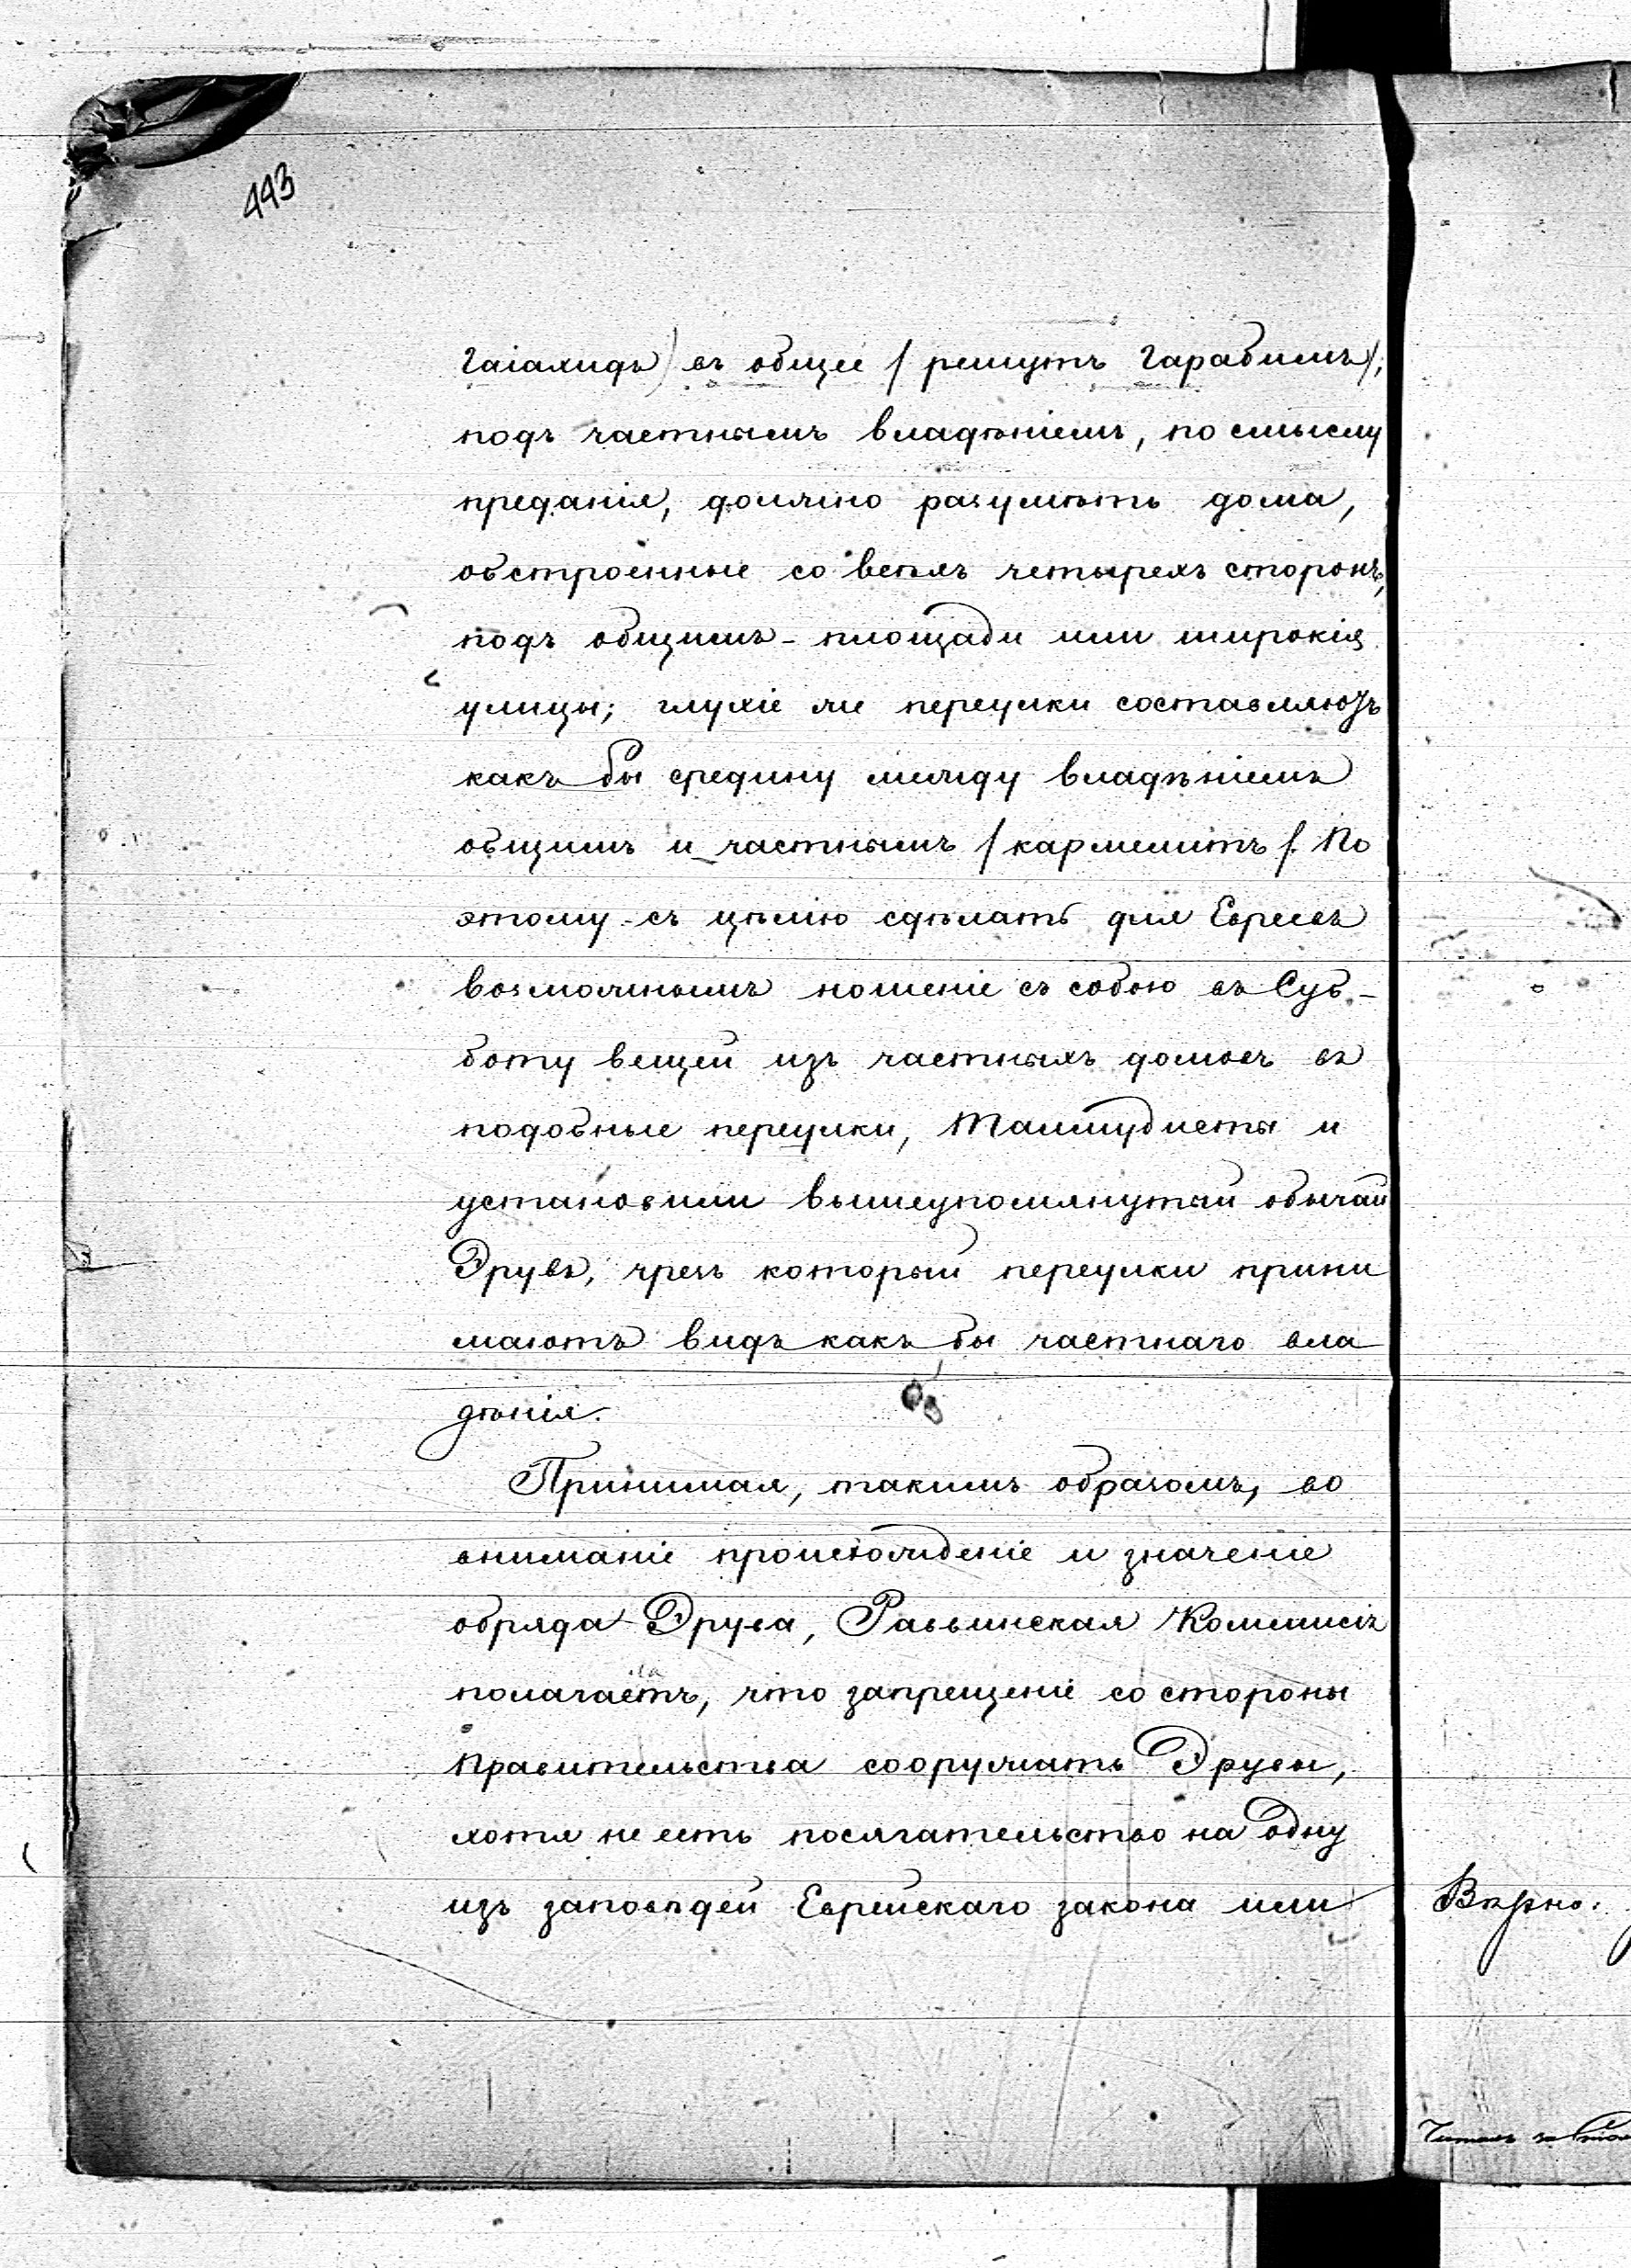 443
гаіахидъ) въ общее /решутъ гарабимъ/;
подъ частнымъ владѣніемъ, по смыслу
преданія, должно разумѣть дома,
обстроенные со всѣхъ четырехъ сторонъ,
подъ общимъ - площади или широкія
улицы; глухіе же переулки составляютъ
какъ бы средину между владѣніемъ
общимъ и частнымъ /кармелитъ/. По
этому съ цѣлію сдѣлать для Евреевъ
возможнымъ ношеніе съ собою въ Суб-
боту вещей изъ частныхъ домовъ въ
подобные переулки, Талмудисты и
установили вышеупомянутый обычай
Эрувъ, чрезъ который переулки прини
маютъ видъ какъ бы частнаго вла
дѣнія.
Принимая, такимъ образомъ, во
вниманіе происхожденіе и значеніе
обряда Эрува, Раввинская Коммисія
полагаетъ, что запрещеніе со стороны
Правительства сооружать Эрувы,
хотя не есть посягательство на одну
изъ заповѣдей Еврейскаго закона или
Вѣрно:
Читалъ за